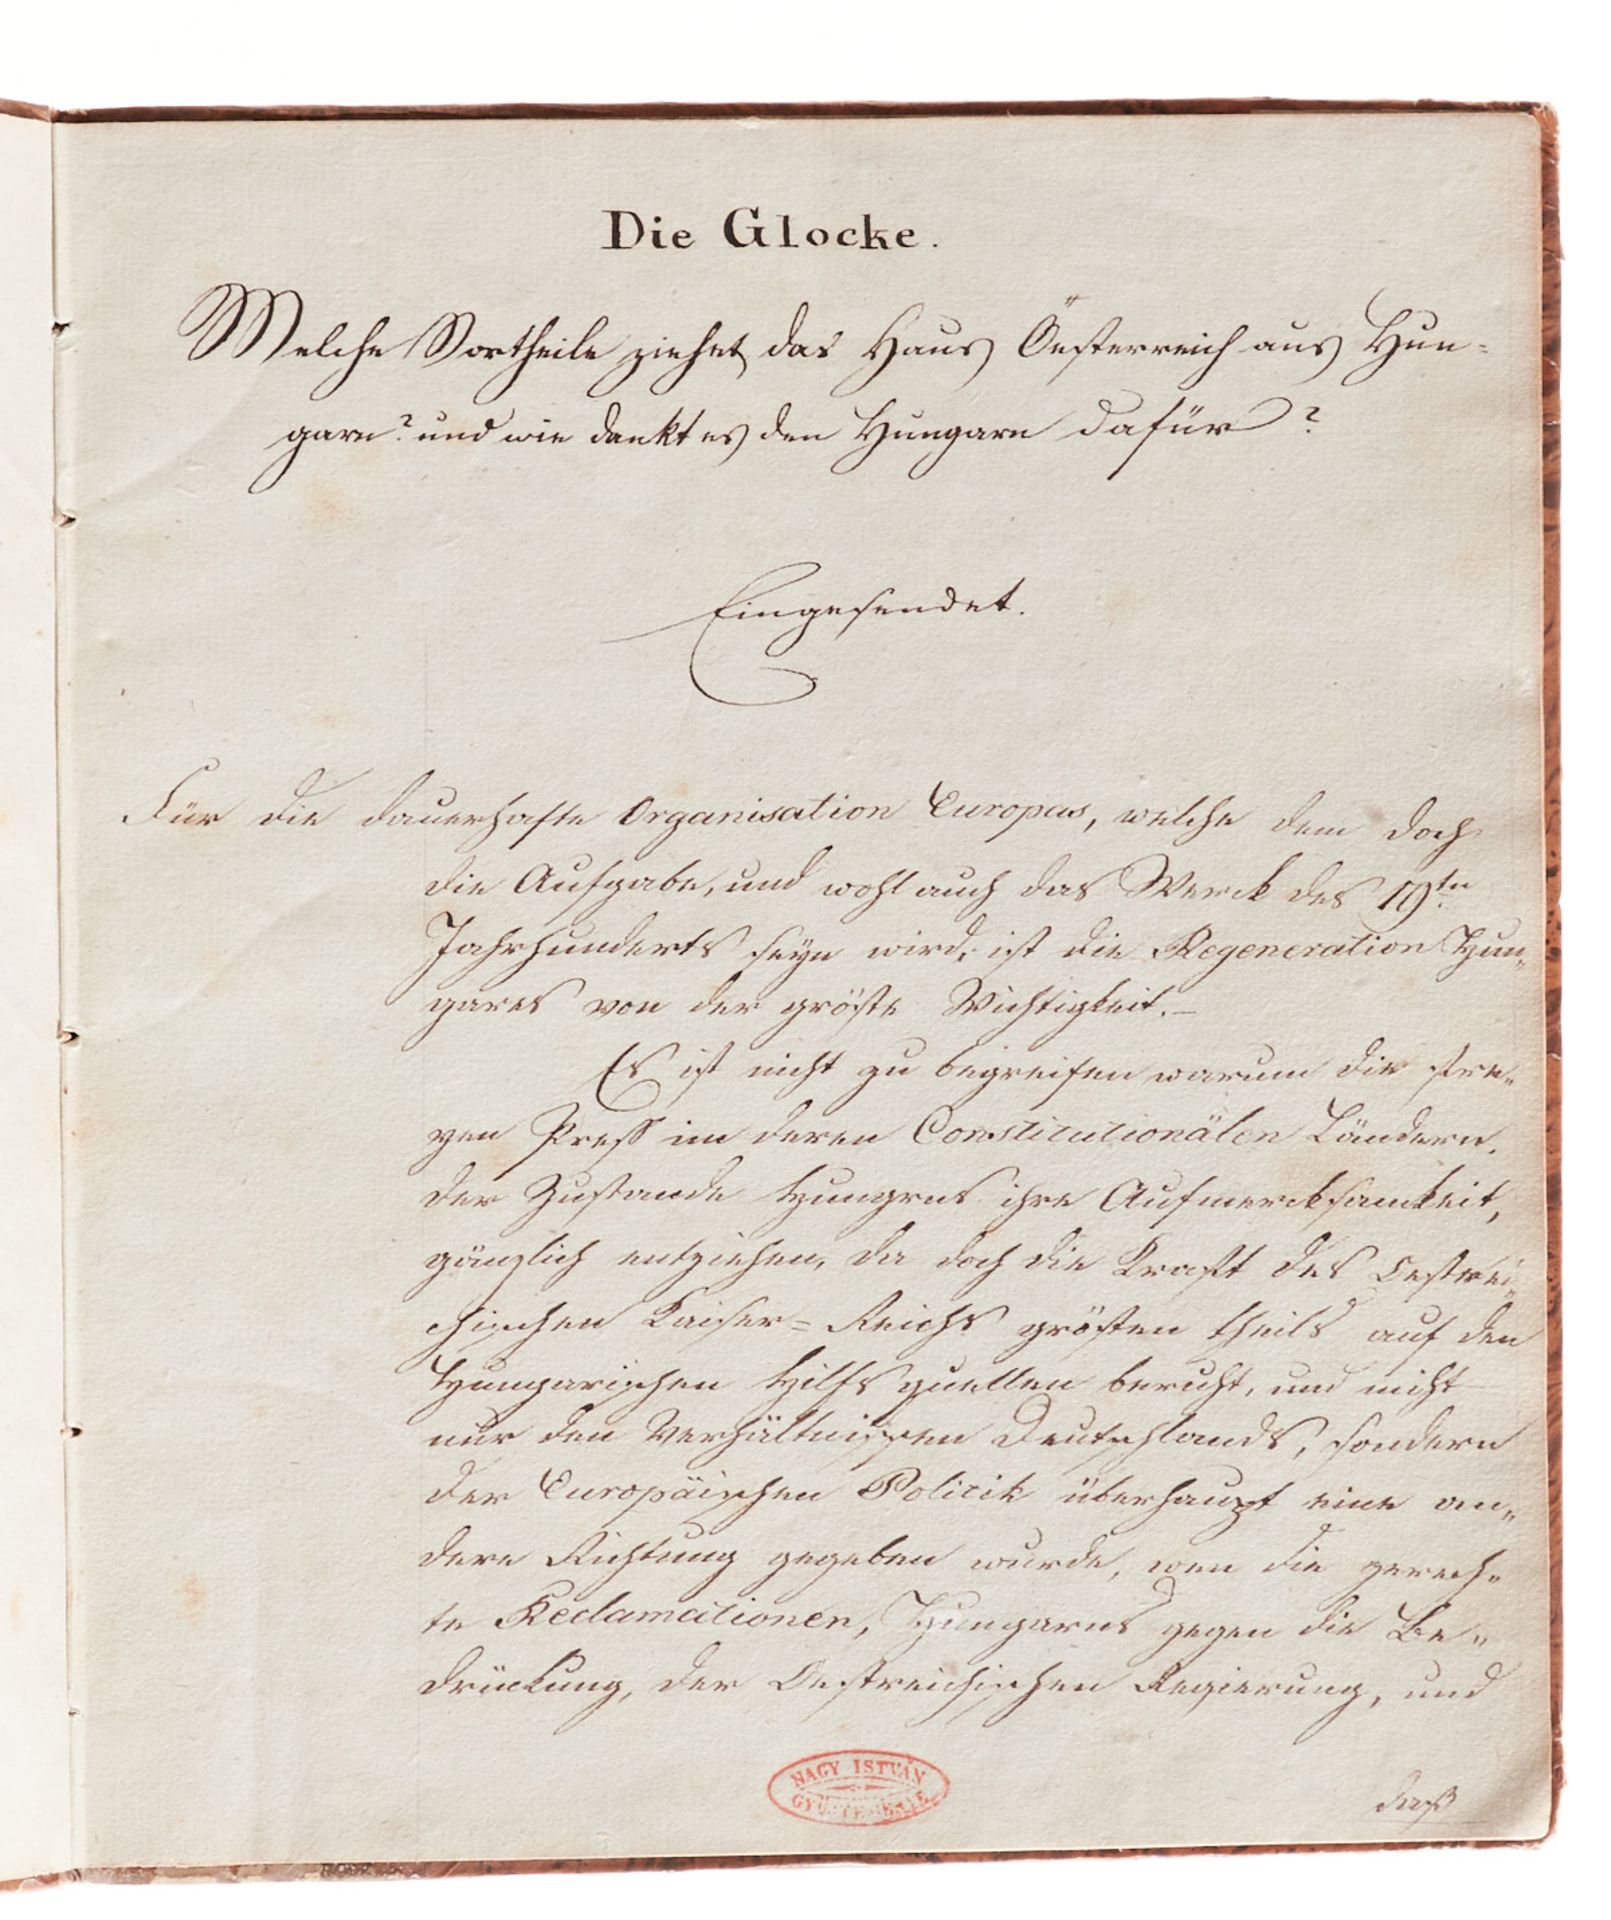 Die Glocke.
Welche Vortheile ziehet das Haus Öesterreich aus Hun=
garn? und wie dankt es den Hungarn dafür?
Eingesendet.
Für die dauerhafte Organisation Europas, welche dem doch
die Aufgabe, und wohl auch das Werck des 19ten
Jahrhunderts seyn wird, ist die Regeneration Hun„
garns von der gröste Wichtigkeit.–
Es ist nicht zu begreifen warum die fre„
yen Press im deren Constitutionälen Ländern,
der Zustande Hungrns ihre Aufmercksamkeit,
gänzlich entziehen, da doch die Kraft des Oestrei„
chischen Kaiser=Reichs grösten theils auf den
Hungarischen Hilfs quellen beruht, und nicht
nur den Verhältnissen Deutschlands, sondern
der Europäischen Politik überhaupt eine an„
dere Richtung gegeben wurde, wen die gerech„
te Reclamationen, Hungarns gegen die Be„
drückung, der Oestreichischen Regierung, und
daß
NAGY ISTVÁN
GYŰJTEMÉNYE